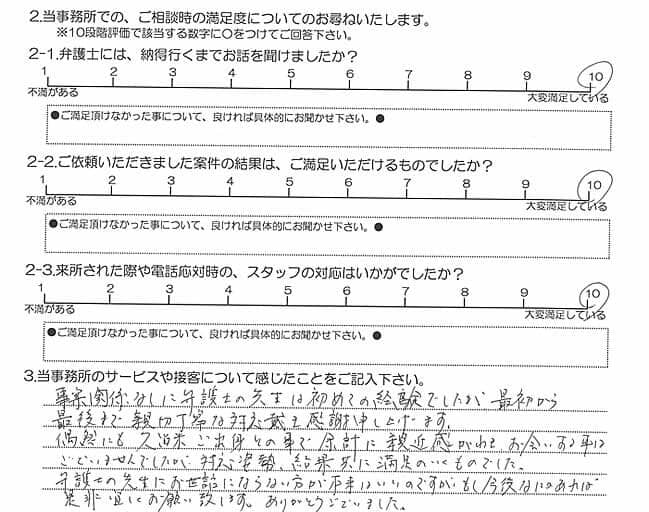 2.当事務所での、ご相談時の満足度についてのお尋ねいたします。
※10段階評価で該当する数字に○をつけてご回答下さい。
2-1.弁護士には、納得行くまでお話を聞けましたか？
1 2 3 4 5 6 7 8 9 10
不満がある 大変満足している
●ご満足頂けなかった事について、良ければ具体的にお聞かせ下さい。●
2-2.ご依頼いただきました案件の結果は、ご満足いただけるものでしたか？
1 2 3 4 5 6 7 8 9 10
不満がある 大変満足している
●ご満足頂けなかった事について、良ければ具体的にお聞かせ下さい。●
2-3.来所された際や電話応対時の、スタッフの対応はいかがでしたか？
1 2 3 4 5 6 7 8 9 10
不満がある 大変満足している
●ご満足頂けなかった事について、良ければ具体的にお聞かせ下さい。●
3.当事務所のサービスや接客について感じたことをご記入下さい。
事案関係なしに弁護士の先生は初めての経験でしたが最初から
最後まで親切丁寧な対応誠に感謝申し上げます。
偶然にも久留米ご出身との事で余計に親近感がわきお会いする事は
ございませんでしたが対応姿勢、結果共に満足のいくものでした。
弁護士の先生にお世話にならない方が本来はいいのですがもし今後なにかあれば
是非宜しくお願い致します。ありがとうございました。